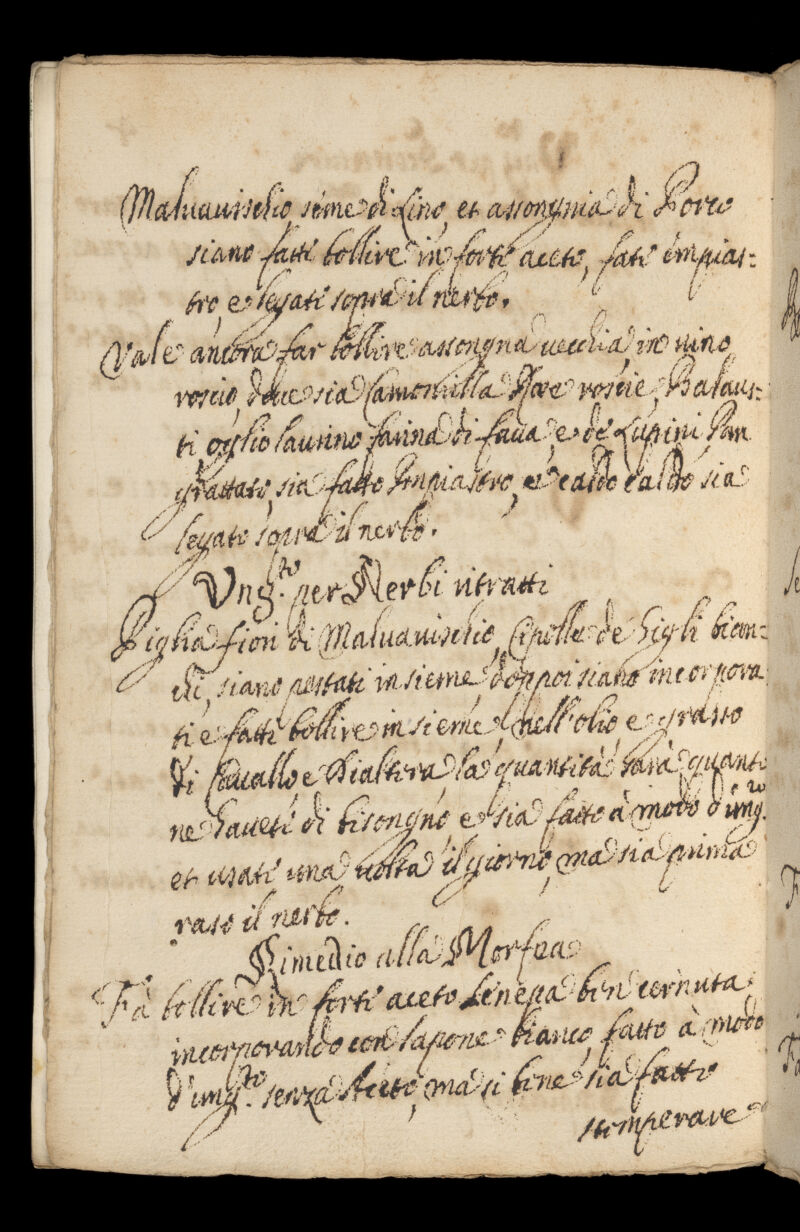 Maluauischio, séme di Lino, et assongnia di Porco
siano fatti bollire in forte aceto, fate impias=
tro, e legati sopra il nerbo.
Vale ancora far bollire assongna uecchia in uino
roscio, doue sia Camomilla Rose roscie, Balaus=
ti, oglio laurino, farina di faua, e de Lupini, Pan
grattato, sia fatto Impiastro, e caldo caldo sia
legato sopra il nerbo.
Ung.to per Nerbi ritratti
Piglia fiori di Maluauischio, Cipolle de Gigli bian=
chi, siano pestati insieme, doppoi siano incorpora
ti e fatti bollire insieme nell'olio e grasso
di Cauallo, e Dialtera, la quantità sarà quanto
ne haueti di bisongno, e sia fatto à modo d'ung.to
et usati una uolta il giorno, ma sia prima
raso il nerbo.
Rimedio alla Morfea
Fà bollire in forte aceto Senepa ben cernuta
incorporando con sapone bianco, fatto à modo
d'ung.to senza Aceto, ma si bene sia fatto
stemperare